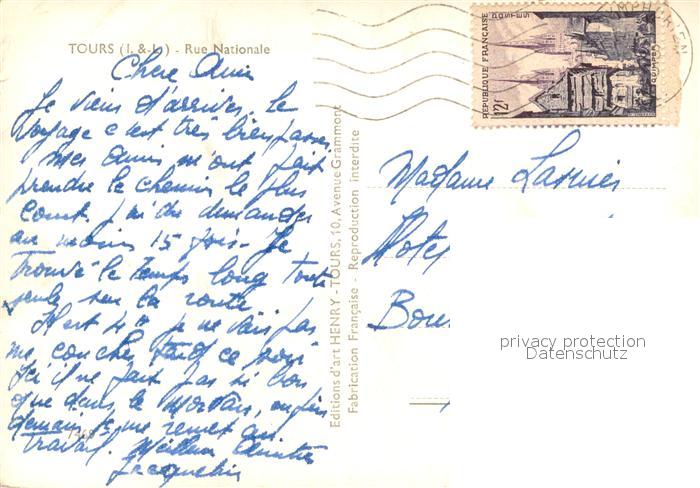 TOURS (I. & L.) - Rue Nationale
Chère Amie
Je viens d'arriver. Le
voyage c'est très bien passé
mes Amis m'ont fait
prendre le chemin le plus
court. j'ai du demander
au moins 15 fois. Je
trouve le temps long toute
seule sur la route
Il est 4h je ne vais pas
me coucher tard ce soir
Ici il ne fait pas si bon
que dans le Morvan, enfin
demain je me remet au
travail. Meilleur Amitiés
Jacqueline
Editions d'art HENRY - TOURS, 10, Avenue Grammont
Fabrication Française - Reproduction interdite
RÉPUBLIQUE FRANÇAISE
POSTES
12f
QUIMPER
Madame
Hotel
privacy protection
Datenschutz